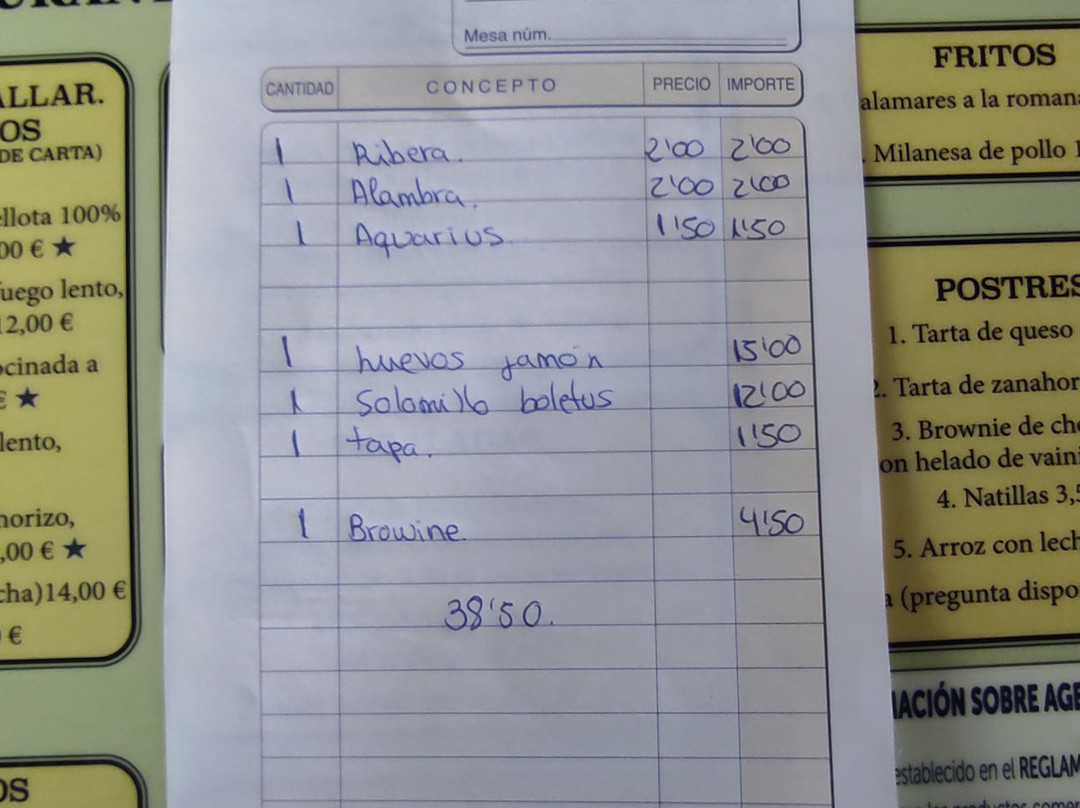 Mesa núm.
CANTIDAD CONCEPTO PRECIO IMPORTE
1 Ribera. 2'00 2'00
1 Alambra. 2'00 2'00
1 Aquarius. 1'50 1'50
1 huevos jamón 15'00
1 Solomillo boletus 12'00
1 tapa. 1'50
1 Browine. 4'50
38'50.
ALLAR.
OS
DE CARTA)
ellota 100%
00 € ★
fuego lento,
12,00 €
ocinada a
€ ★
lento,
horizo,
,00 € ★
cha)14,00 €
€
OS
FRITOS
alamares a la romana
. Milanesa de pollo 1
POSTRES
1. Tarta de queso
2. Tarta de zanahor
3. Brownie de cho
on helado de vaini
4. Natillas 3,5
5. Arroz con lech
a (pregunta dispo
MACIÓN SOBRE AGE
establecido en el REGLAM